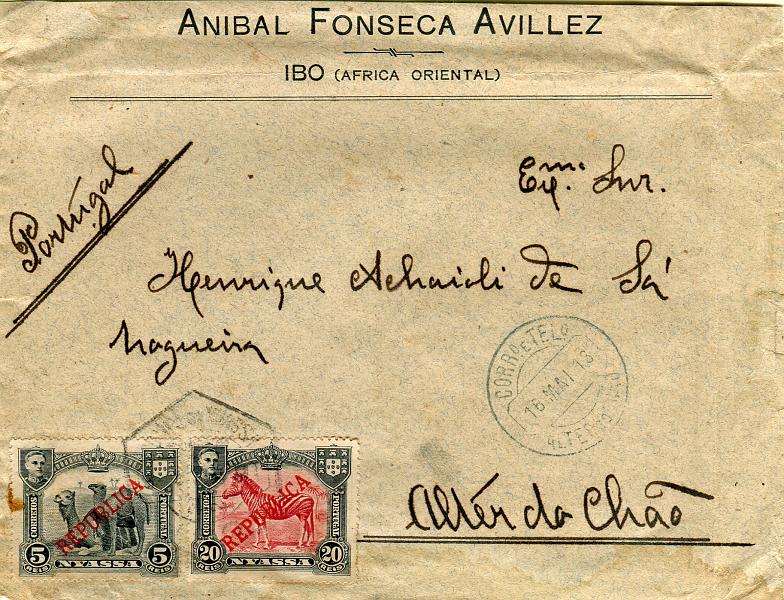 ANIBAL FONSECA AVILLEZ
IBO (AFRICA ORIENTAL)
Portugal
Exmº. Snr.
Henrique Achaioli de Sá
Nogueira
CORRO E TELO
16 MAI 13
ALTER DO
Altér do Chão
CORREIOS
PORTUGAL
REPUBLICA
5
REIS
NYASSA
5
REIS
CORREIOS
PORTUGAL
REPUBLICA
20
REIS
NYASSA
20
REIS